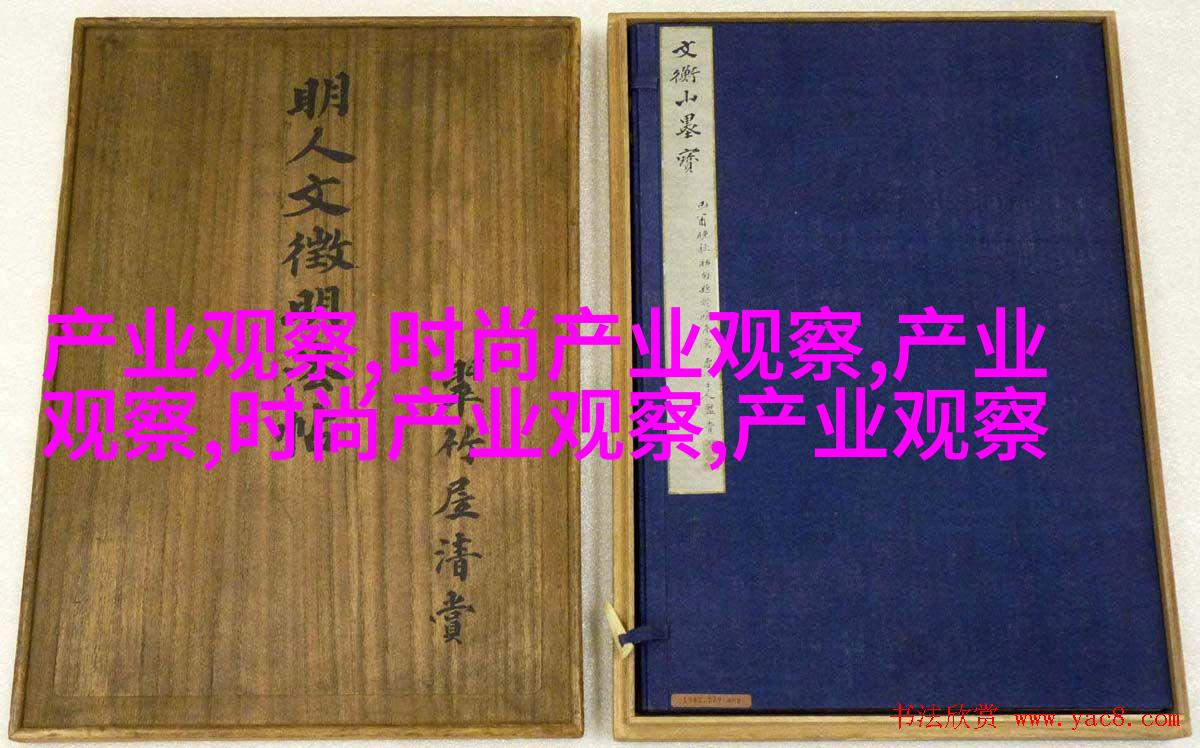 明人文徵明法帖
翠竹屋清赏
文衡山墨寶
产业观察,时尚产业观察,产业
观察,时尚产业观察,产业观察
书法欣赏 www.yac8.com